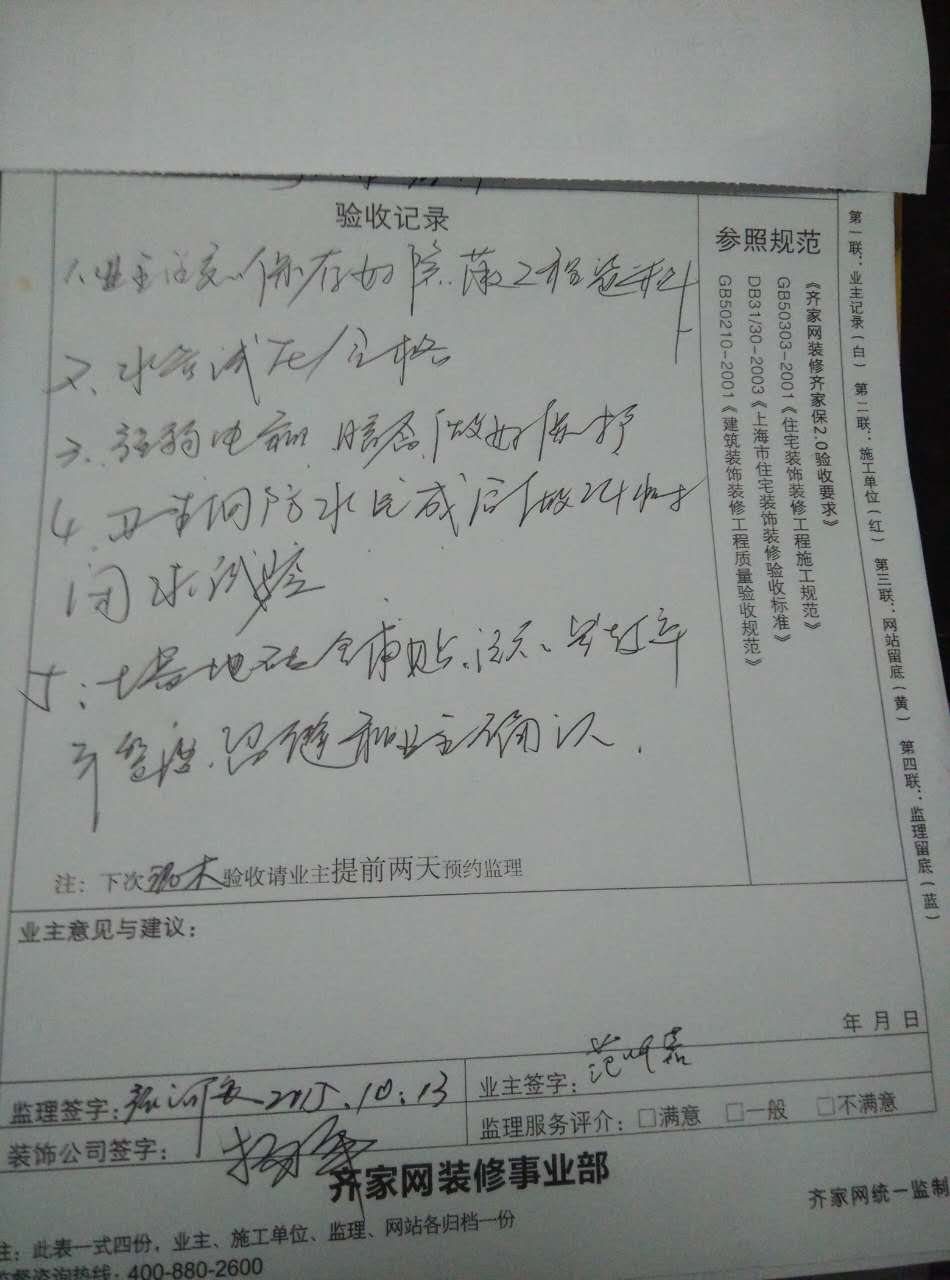 验收记录
1、业主注意保存好隐蔽工程资料
2、水管试压合格
3、强弱电箱、暗盒做好保护
4、卫生间防水完成后做24小时
闭水试验
5、墙地砖全铺贴、
留缝和业主确认.
注：下次泥木验收请业主提前两天预约监理
参照规范
《齐家网装修齐家保2.0验收要求》
GB50303-2001《住宅装饰装修工程施工规范》
DB31/30-2003《上海市住宅装饰装修验收标准》
GB50210-2001《建筑装饰装修工程质量验收规范》
第一联：业主记录（白） 第二联：施工单位（红） 第三联：网站留底（黄） 第四联：监理留底（蓝）
业主意见与建议：
年 月 日
监理签字： 2015.10.13
业主签字：范明嘉
装饰公司签字：
监理服务评介：□满意 □一般 □不满意
齐家网装修事业部
齐家网统一监制
注：此表一式四份，业主、施工单位、监理、网站各归档一份
监督咨询热线：400-880-2600